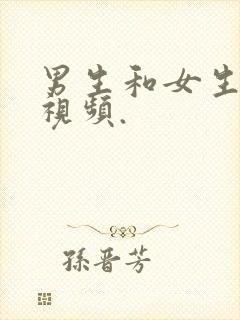 男生和女生
視頻.
孫晋芳